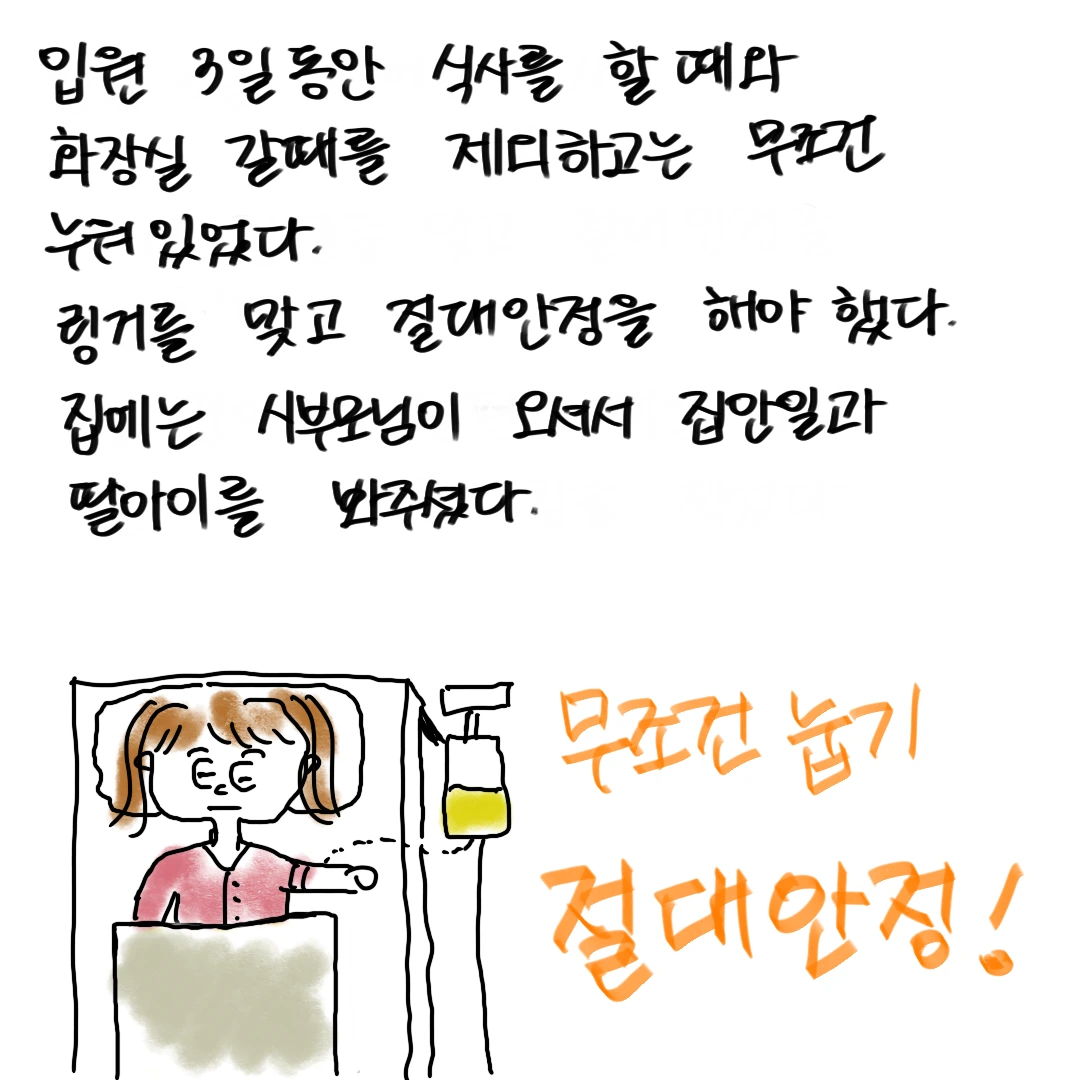 입원 3일동안 식사를 할 때와
화장실 갈때를 제외하고는 무조건
누워있었다.
링거를 맞고 절대안정을 해야 했다.
집에는 시부모님이 오셔서 집안일과
딸아이를 봐주셨다.
무조건 눕기
절대안정!